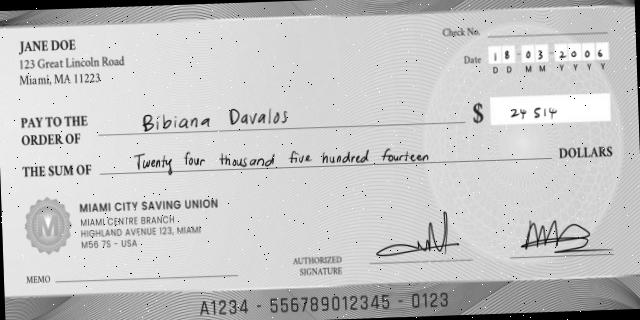 JANE DOE
123 Great Lincoln Road
Miami, MA 11223
Check No.
Date 18-03-2006
D D M M Y Y Y Y
PAY TO THE ORDER OF Bibiana Davalos $ 24 514
THE SUM OF Twenty four thousand five hundred fourteen DOLLARS
M MIAMI CITY SAVING UNION
MIAMI CENTRE BRANCH
HIGHLAND AVENUE 123, MIAMI
M56 7S - USA
MEMO
AUTHORIZED SIGNATURE
A1234 - 556789012345 - 0123